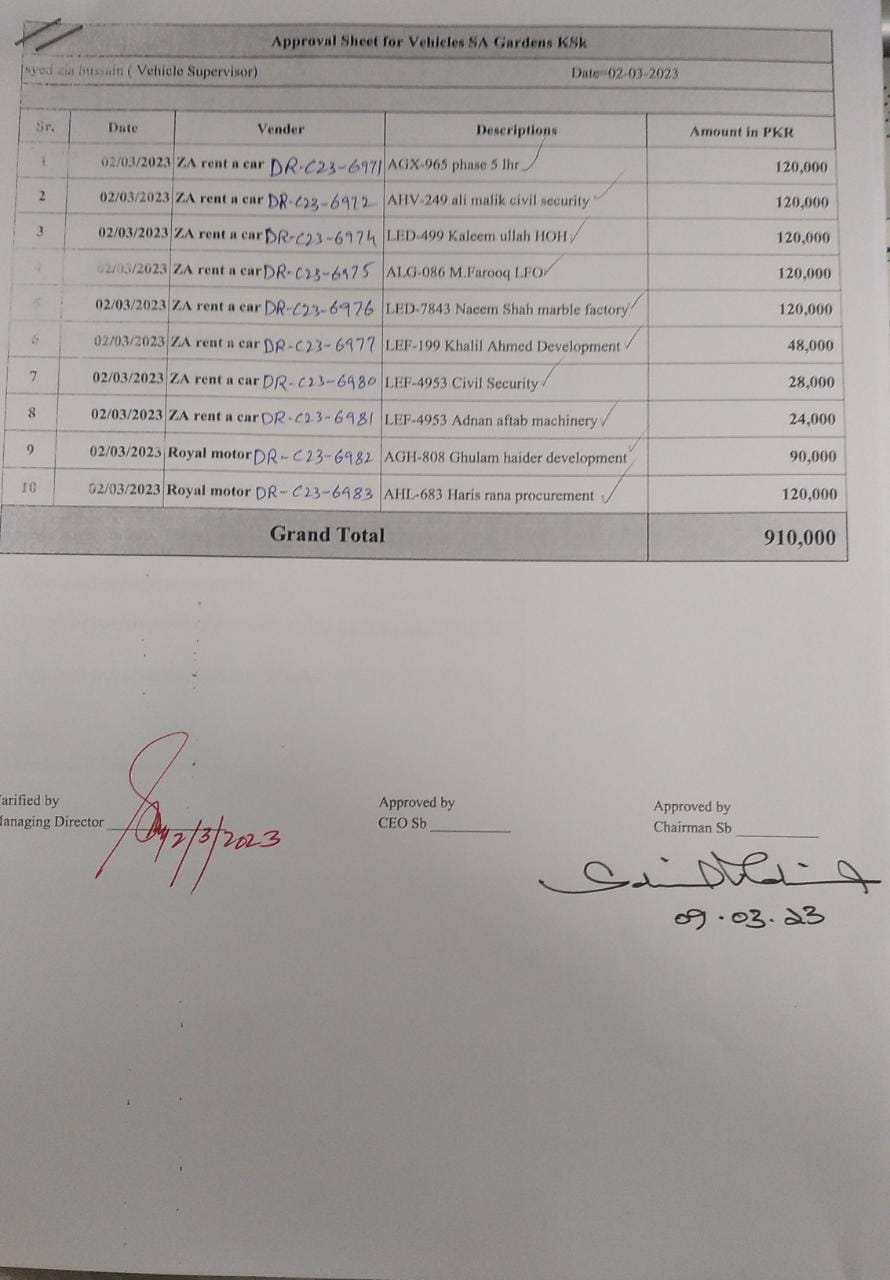 Approval Sheet for Vehicles SA Gardens KSk
syed zia hussain ( Vehicle Supervisor) Date 02-03-2023
Sr. Date Vender Descriptions Amount in PKR
1 02/03/2023 ZA rent a car DR-C23-6971 AGX-965 phase 5 lhr 120,000
2 02/03/2023 ZA rent a car DR-C23-6972 AHV-249 ali malik civil security 120,000
3 02/03/2023 ZA rent a car DR-C23-6974 LED-499 Kaleem ullah HOH 120,000
4 02/03/2023 ZA rent a car DR-C23-6975 ALG-086 M.Farooq LFO 120,000
5 02/03/2023 ZA rent a car DR-C23-6976 LED-7843 Naeem Shah marble factory 120,000
6 02/03/2023 ZA rent a car DR-C23-6977 LEF-199 Khalil Ahmed Development 48,000
7 02/03/2023 ZA rent a car DR-C23-6980 LEF-4953 Civil Security 28,000
8 02/03/2023 ZA rent a car DR-C23-6981 LEF-4953 Adnan aftab machinery 24,000
9 02/03/2023 Royal motor DR-C23-6982 AGH-808 Ghulam haider development 90,000
10 02/03/2023 Royal motor DR-C23-6983 AHL-683 Haris rana procurement 120,000
Grand Total 910,000
arified by Approved by Approved by
anaging Director 2/3/2023 CEO Sb Chairman Sb
09.03.23